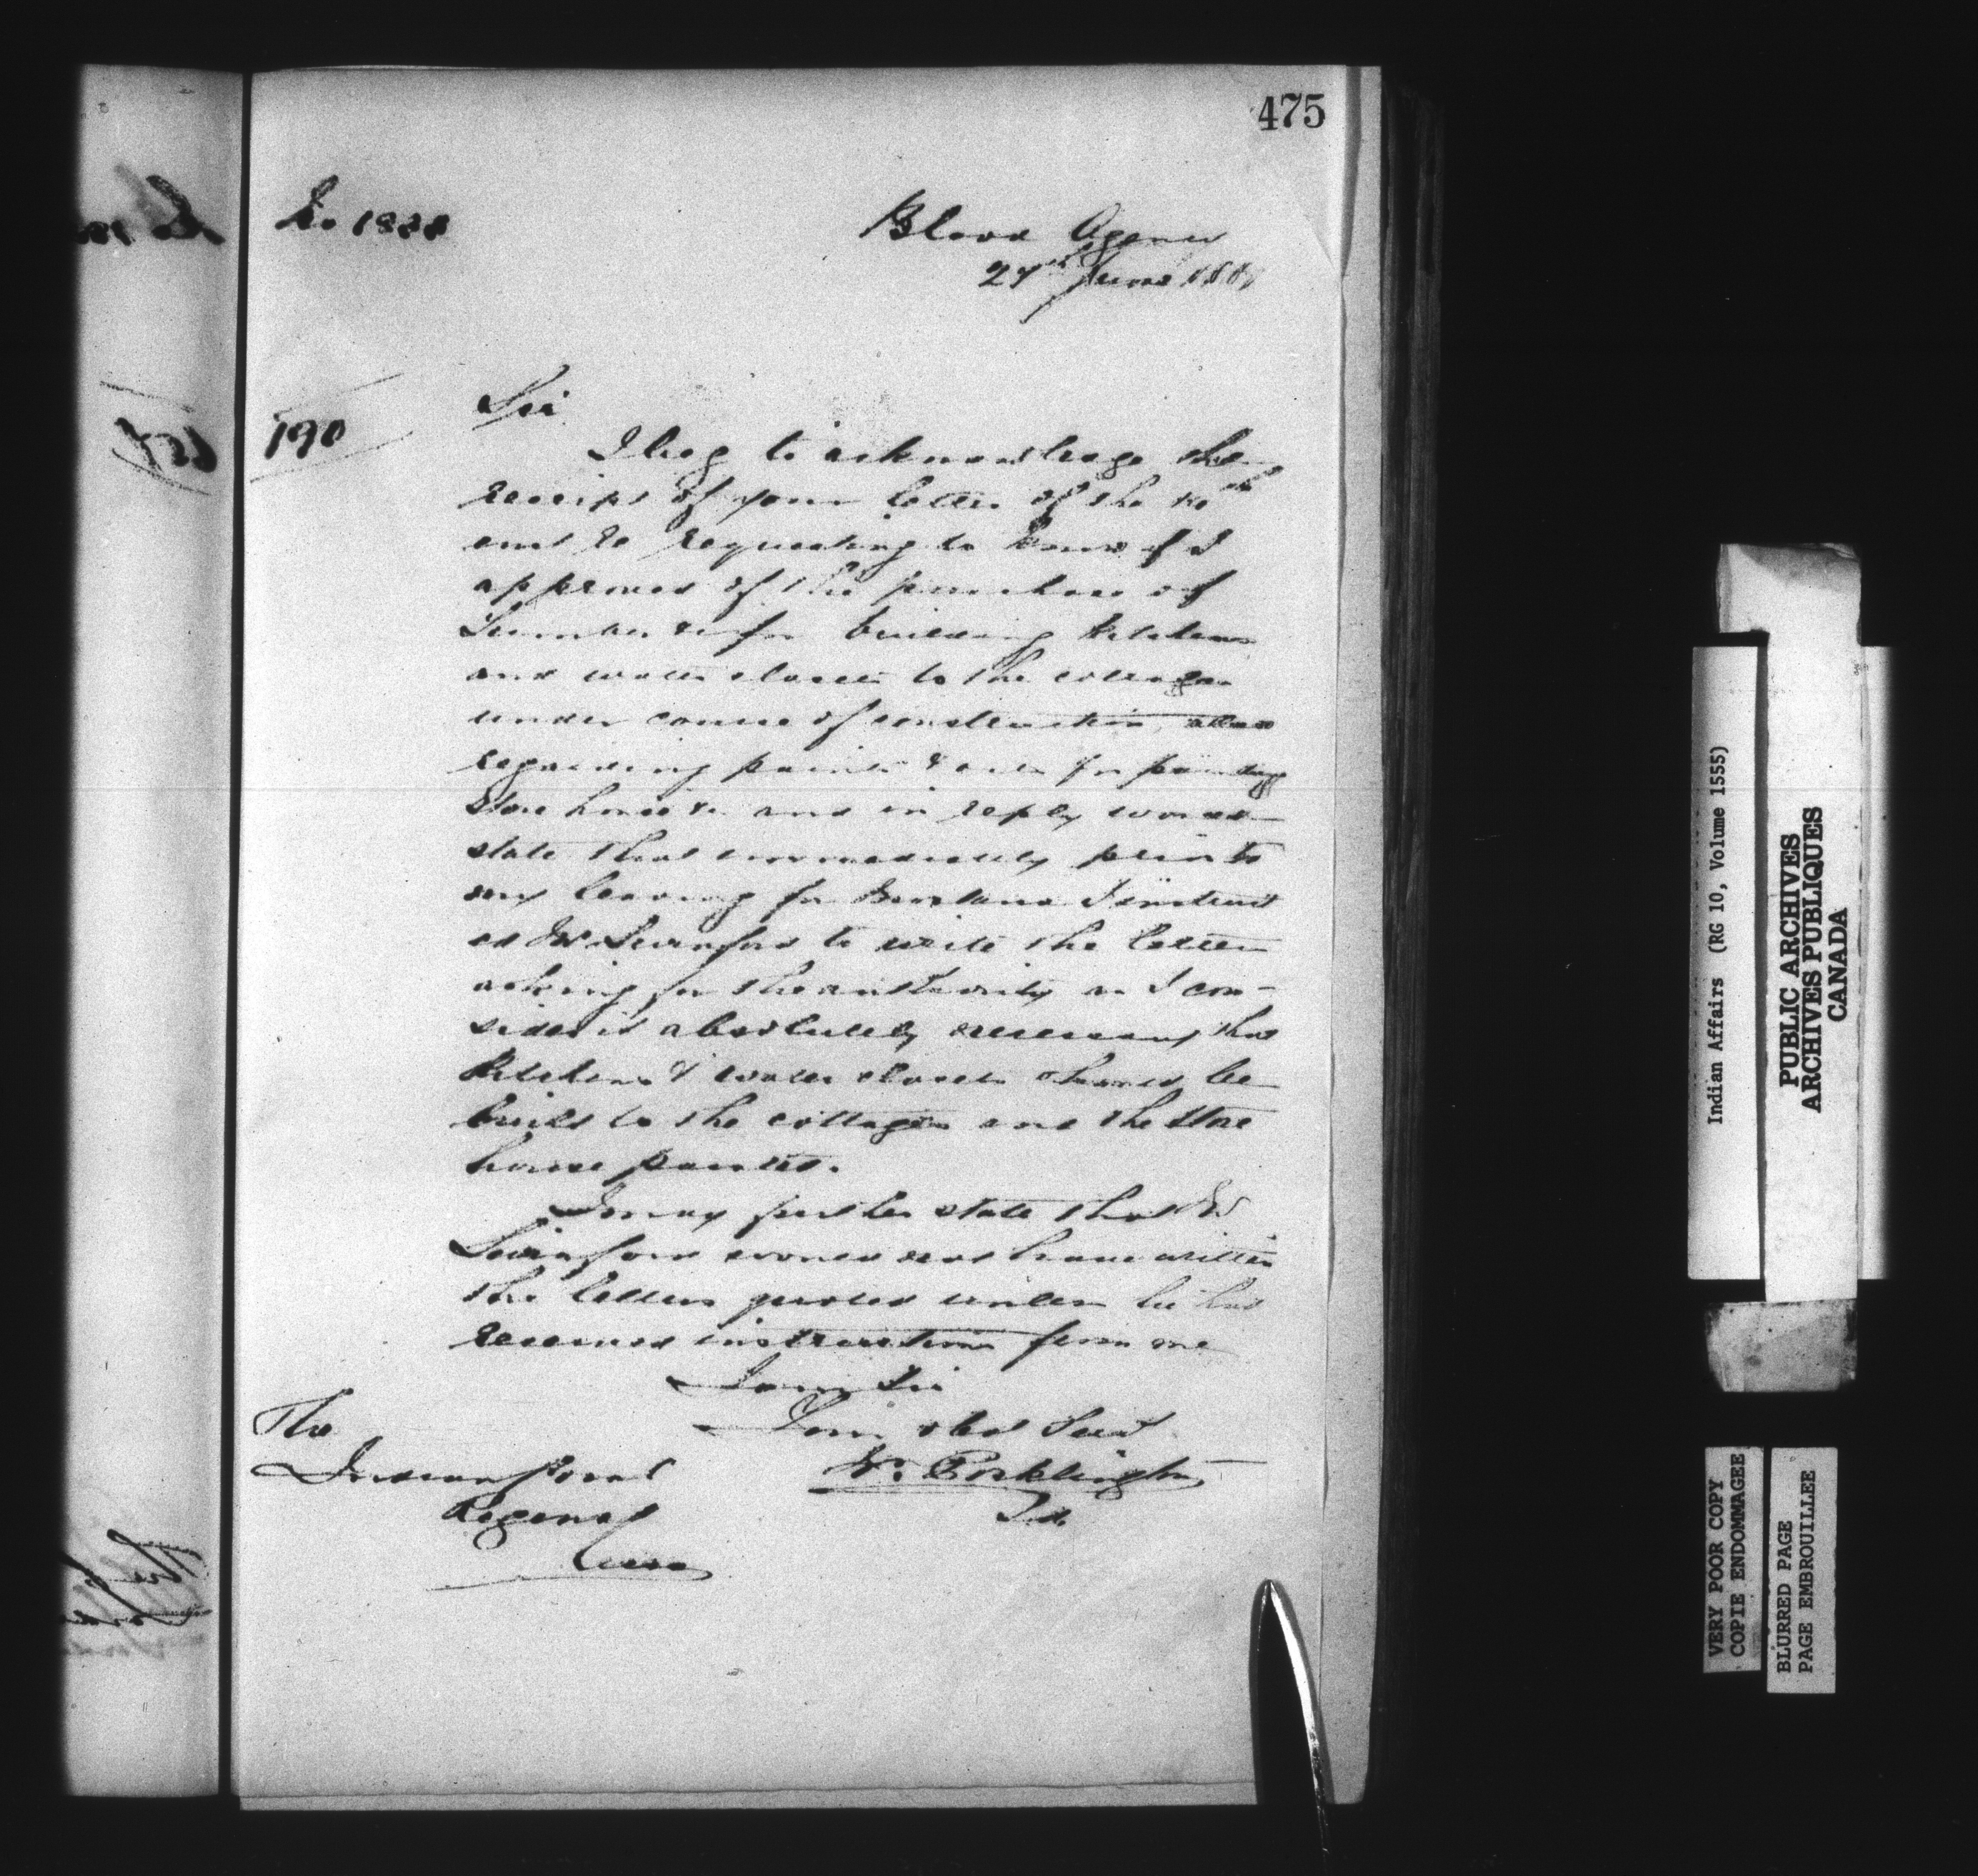 475
No 1888
Blood Agency
27th June 188
190
Sir
I beg to acknowledge the
receipt of your letter of the 10th
and requesting to know if I
approved of the purchase of
Lumber &c for building kitchens
and water closets to the cottages
under course of construction, also
regarding paints & oils for painting
store house &c and in reply would
state that immediately prior to
my leaving for I instruct
ed Mr Swinford to write the letter
asking for the authority as I con-
sider it absolutely necessary that
kitchens & water closets should be
built to the cottages and the store
house painted.
I may further state that Mr
Swinford would not have written
the letters quoted unless he had
received instructions from me
I am Sir
Your obed Servt
W. Pocklington
The
Indian
Regina
Assa
Indian Affairs (RG 10, Volume 1555)
PUBLIC ARCHIVES
ARCHIVES PUBLIQUES
CANADA
VERY POOR COPY
COPIE ENDOMMAGEE
BLURRED PAGE
PAGE EMBROUILLEE